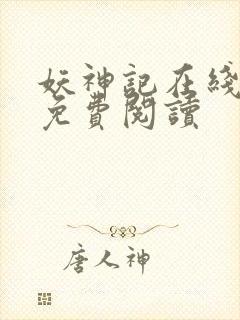 妖神記在綫
免費閱讀
唐人神